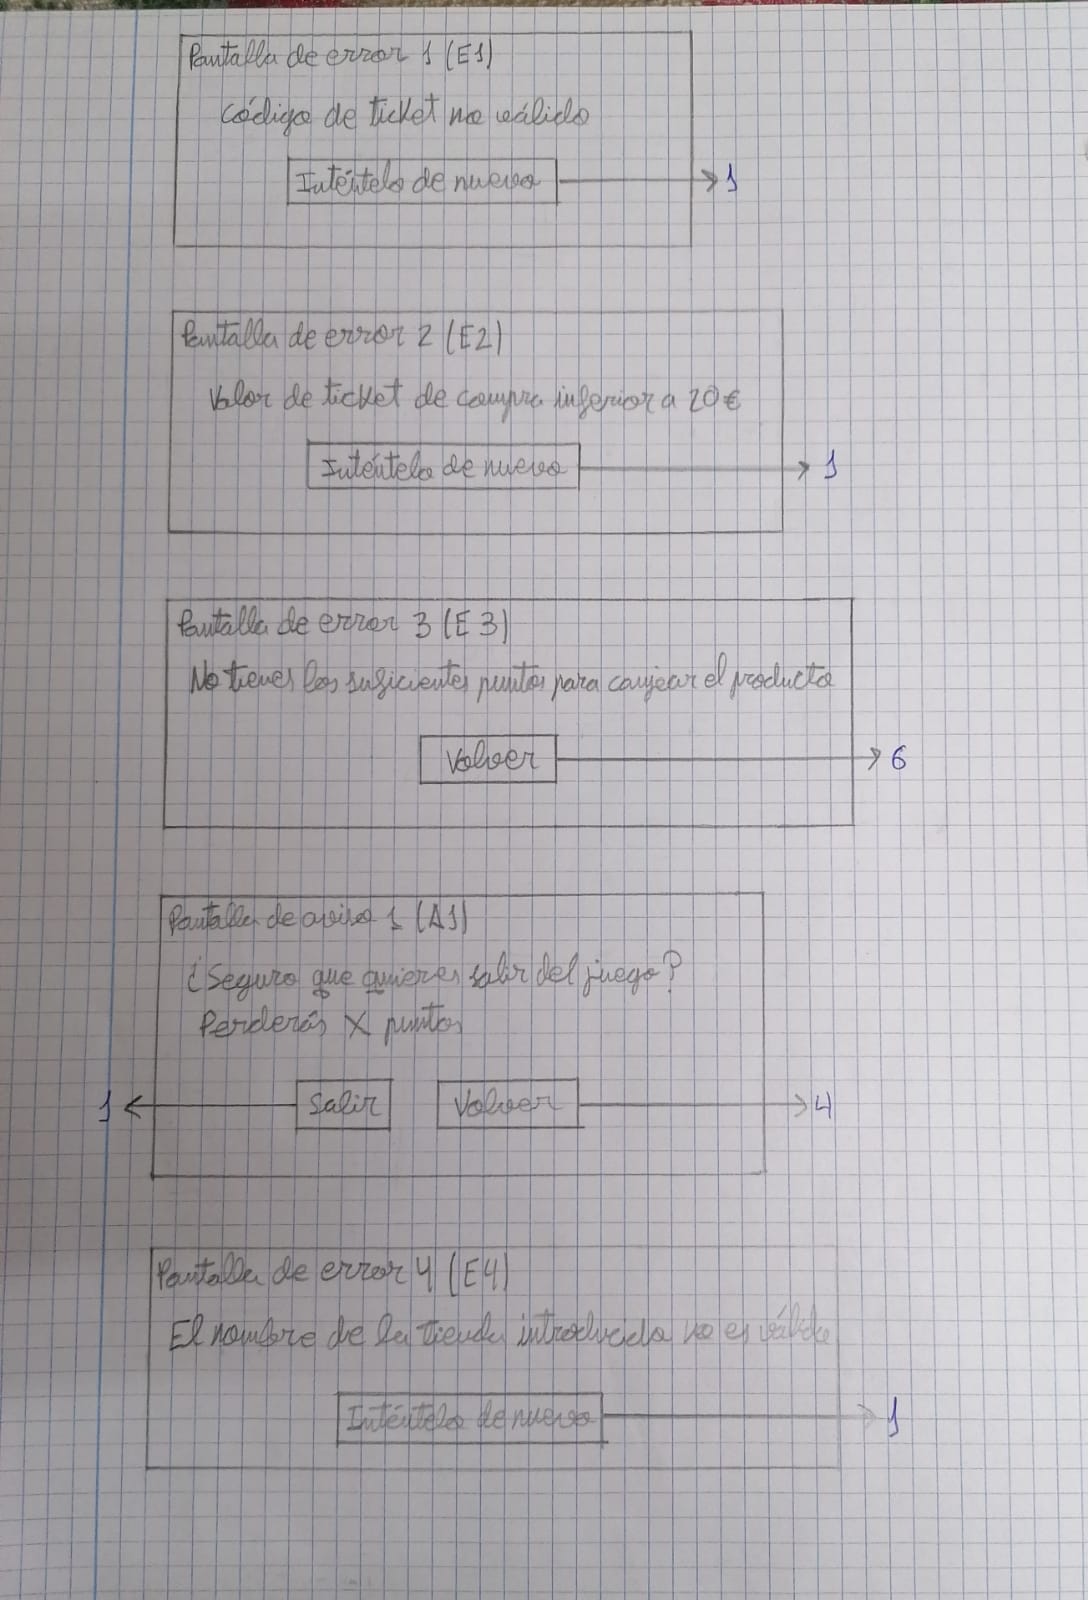 Pantalla de error 1 (E1)
Código de ticket no válido
Inténtelo de nuevo → 1
Pantalla de error 2 (E2)
Valor de ticket de compra inferior a 20€
Inténtelo de nuevo → 1
Pantalla de error 3 (E3)
No tienes los suficientes puntos para canjear el producto
Volver → 6
Pantalla de aviso 1 (A1)
¿Seguro que quieres salir del juego?
Perderás X puntos
1 ← Salir Volver → 4
Pantalla de error 4 (E4)
El nombre de la tienda introducida no es válida
Inténtelo de nuevo → 1